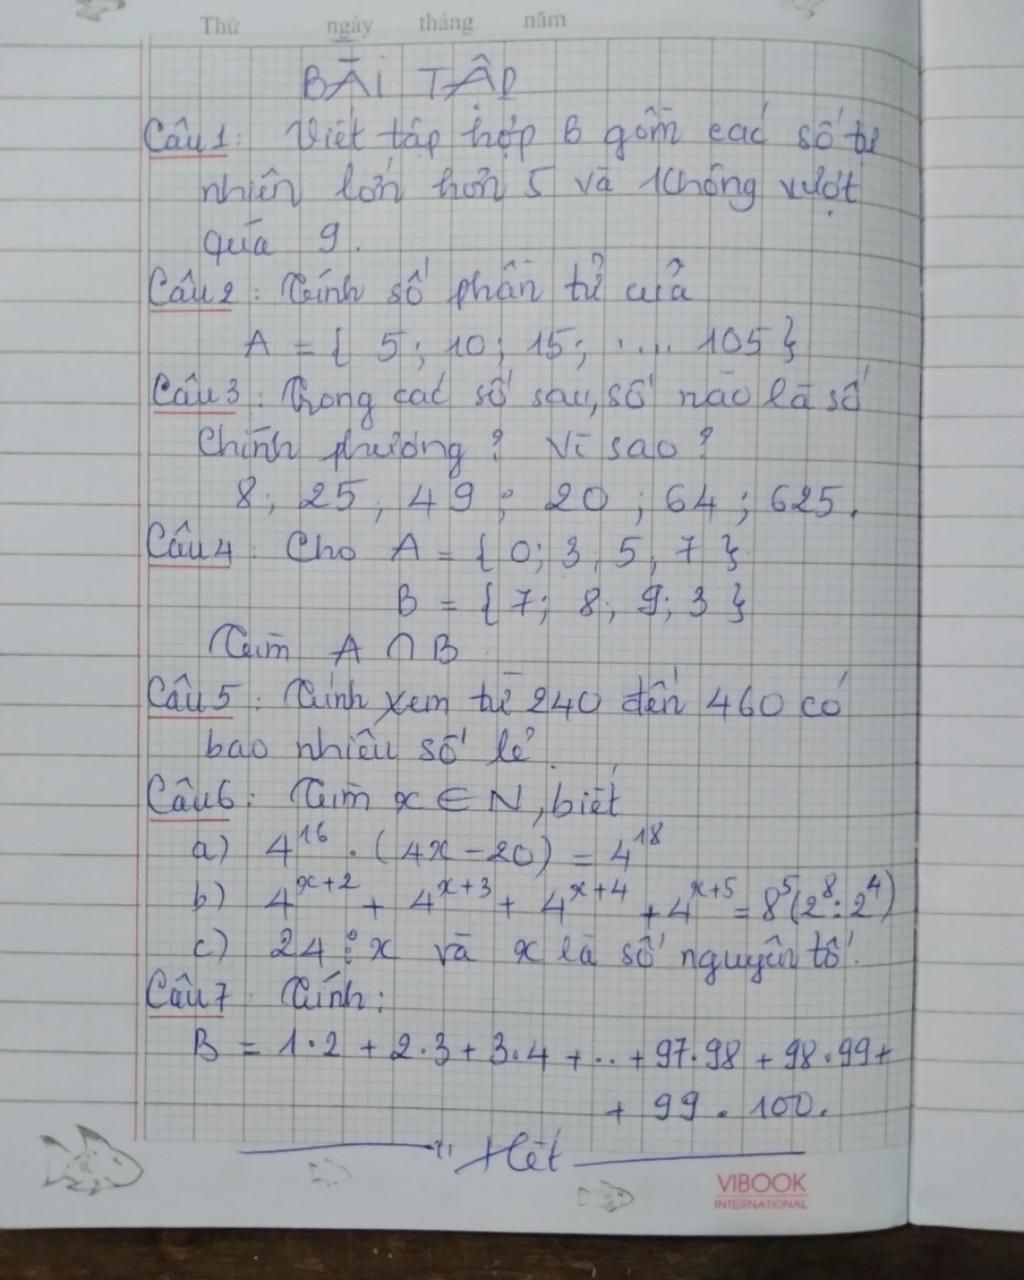 Thứ ngày tháng năm
BÀI TẬP
Câu 1: Viết tập hợp B gồm các số tự
nhiên lớn hơn 5 và không vượt
quá 9.
Câu 2: Tính số phần tử của
A = { 5; 10; 15; .... 105 }
Câu 3: Trong các số sau, số nào là số
chính phương? Vì sao?
8; 25, 49; 20; 64; 625.
Câu 4: Cho A = { 0; 3, 5, 7 }
B = { 7; 8, 9; 3 }
Tìm A ∩ B.
Câu 5: Tính xem từ 240 đến 460 có
bao nhiêu số lẻ.
Câu 6: Tìm x ∈ N, biết
a) 4¹⁶ . (4x - 20) = 4¹⁸
b) 4^(x+2) + 4^(x+3) + 4^(x+4) + 4^(x+5) = 8⁵(2⁸:2⁴)
c) 24 ⋮ x và x là số nguyên tố.
Câu 7: Tính:
B = 1.2 + 2.3 + 3.4 + .. + 97.98 + 98.99 +
+ 99 . 100.
" Hết
VIBOOK
INTERNATIONAL